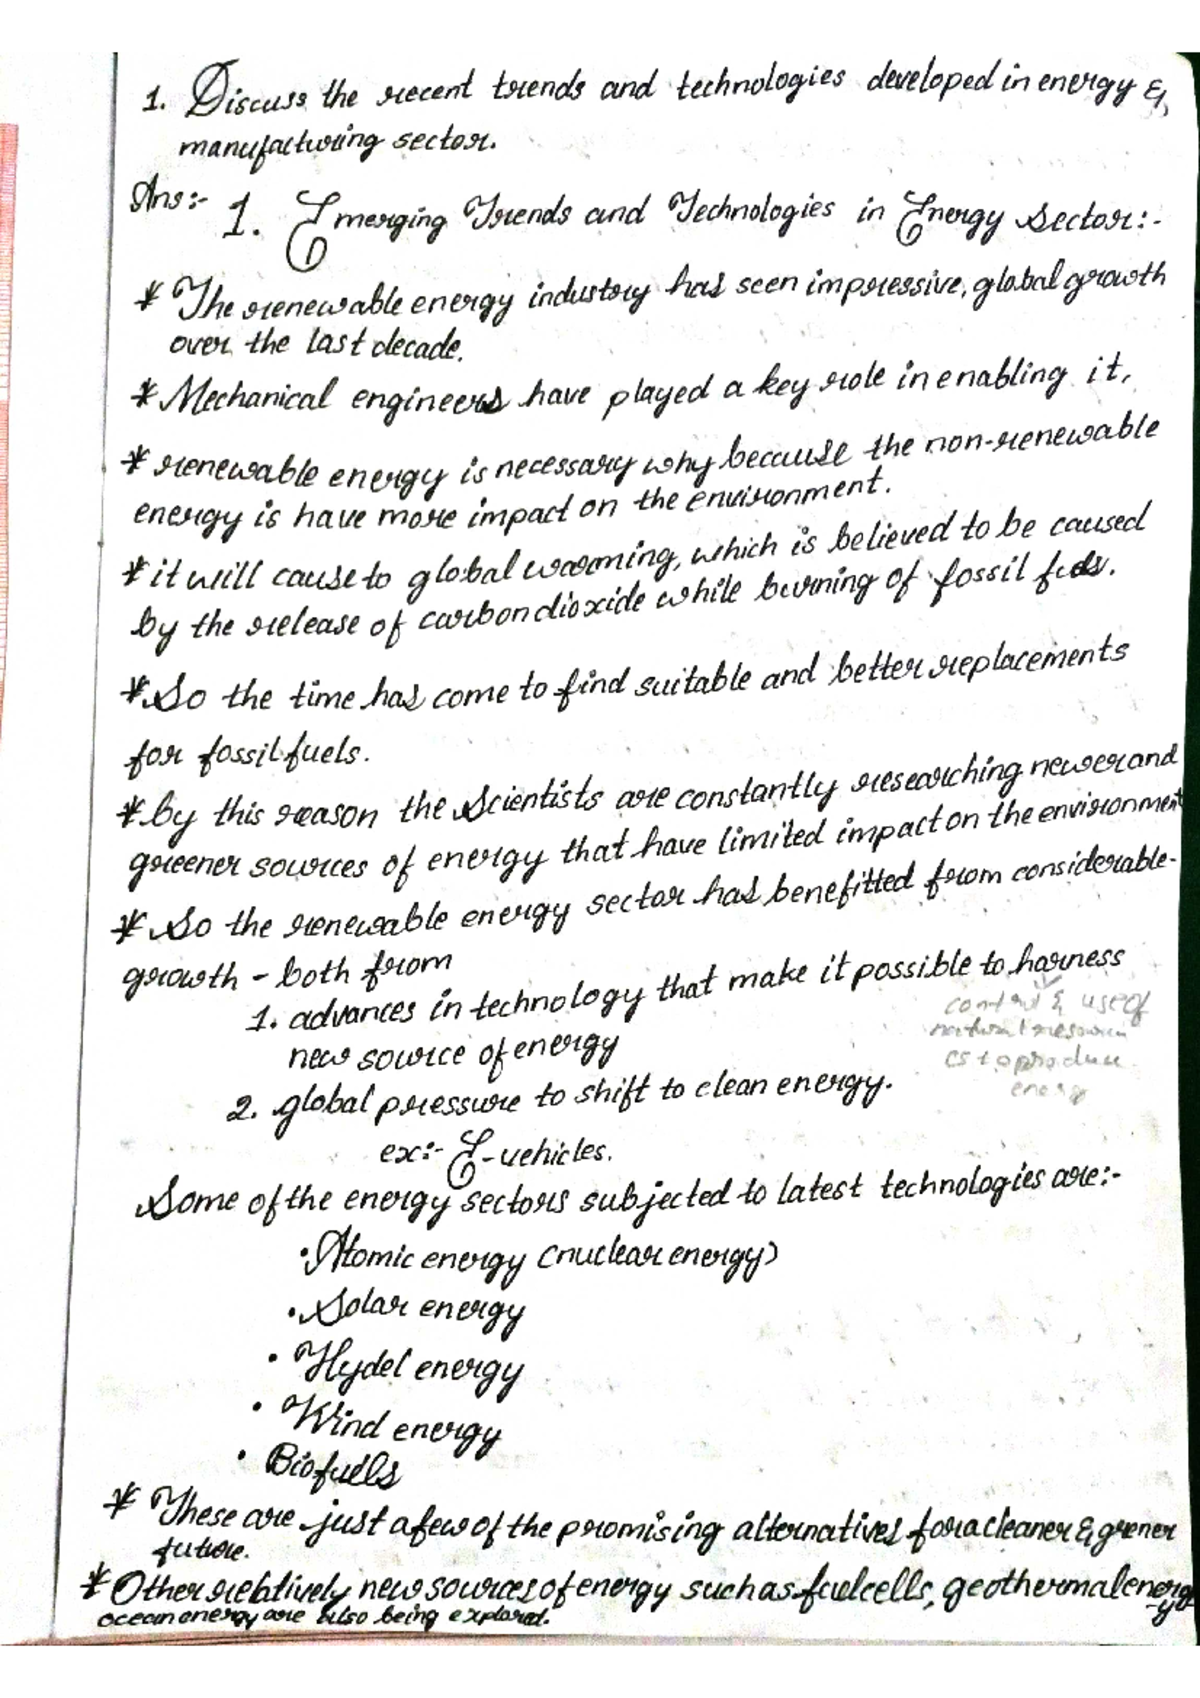 1. Discuss the recent trends and technologies developed in energy &
manufacturing sector.
Ans:- 1. Emerging Trends and Technologies in Energy Sector:-
* The renewable energy industory has seen impressive, global growth
over the last decade.
* Mechanical engineers have played a key role in enabling it,
* renewable energy is necessary why because the non-renewable
energy is have more impact on the environment.
* it will cause to global warming, which is believed to be caused
by the release of carbon dioxide while burning of fossil fuels.
* So the time has come to find suitable and better replacements
for fossil fuels.
* by this reason the Scientists are constantly researching newer and
greener sources of energy that have limited impact on the environment
* So the renewable energy sector has benefitted from considerable-
growth - both from
1. advances in technology that make it possible to harness
control & use of
natural
new source of energy
to produce
energy
2. global pressure to shift to clean energy.
ex:- E-vehicles.
Some of the energy sectors subjected to latest technologies are:-
• Atomic energy (nuclear energy)
• Solar energy
• Hydel energy
• Wind energy
• Biofuells
* These are just a few of the promising alternatives for a cleaner & grener
future.
* Other relatively new sources of energy such as fuel cells, geothermal energy
ocean energy are also being explored.